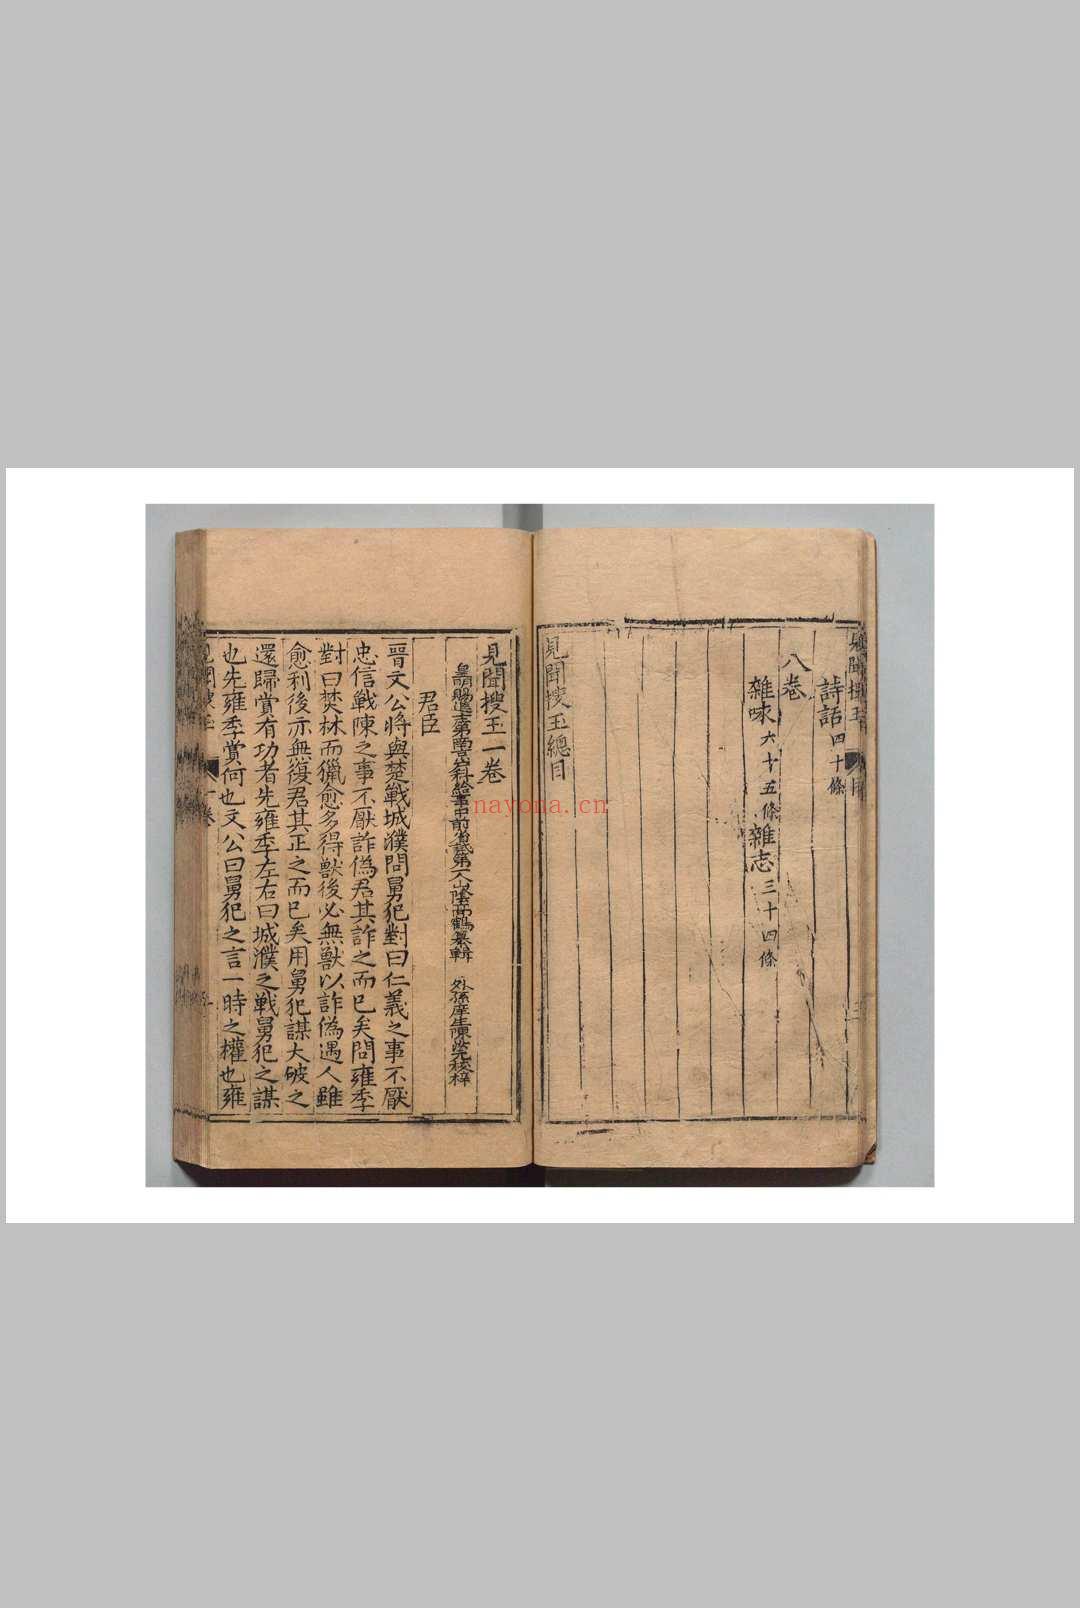 見聞搜玉
目
三
詩話四十條
八卷
雜咏六十五條雜志三十四條
見聞搜玉總目
見聞搜玉一卷
皇明賜進士第南京戶科給事中前省試第一人山陰高鶴纂輯 外孫庠生陳汝元校梓
君臣
晉文公將與楚戰城濮問舅犯對曰仁義之事不厭
忠信戰陳之事不厭詐偽君其詐之而已矣問雍季
對曰焚林而獵愈多得獸後必無獸以詐偽遇人雖
愈利後亦無復君其正之而已矣用舅犯謀大破之
還歸賞有功者先雍季左右曰城濮之戰舅犯之謀
也先雍季賞何也文公曰舅犯之言一時之權也雍
一卷
nayona.cn